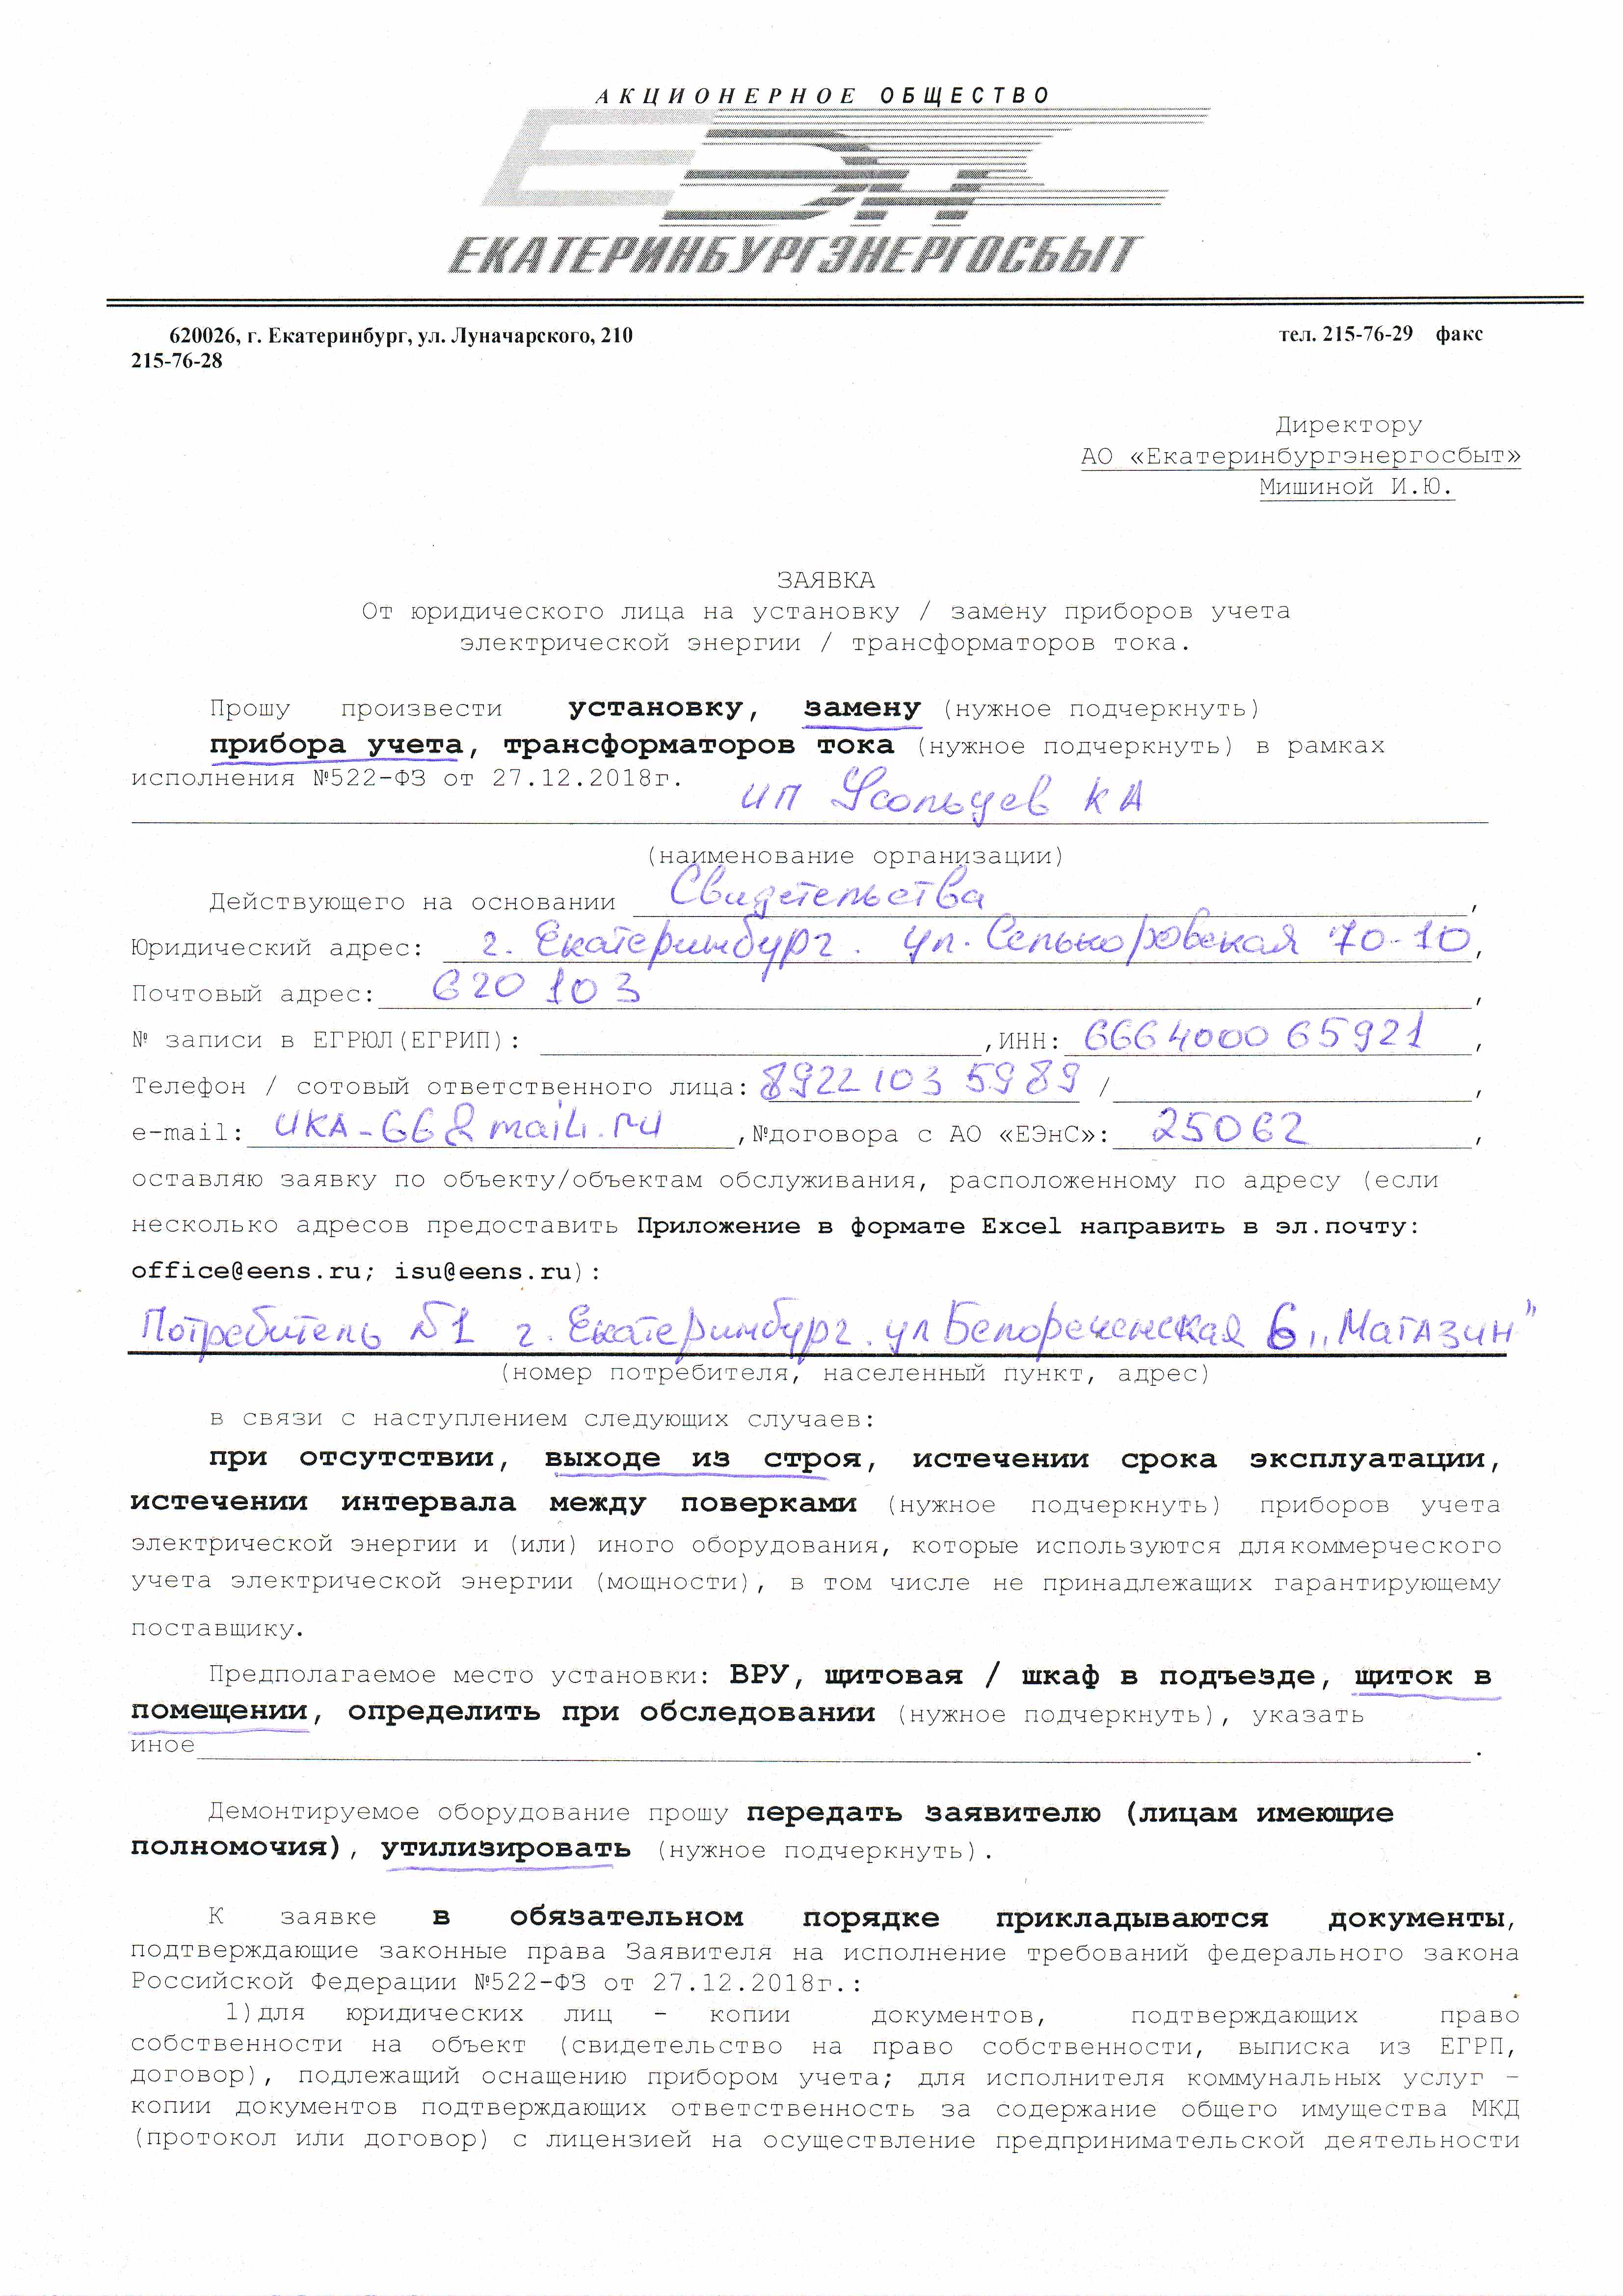 АКЦИОНЕРНОЕ ОБЩЕСТВО
ЕЭНС
ЕКАТЕРИНБУРГЭНЕРГОСБЫТ
620026, г. Екатеринбург, ул. Луначарского, 210 тел. 215-76-29 факс
215-76-28
Директору
АО «Екатеринбургэнергосбыт»
Мишиной И.Ю.
ЗАЯВКА
От юридического лица на установку / замену приборов учета
электрической энергии / трансформаторов тока.
Прошу произвести установку, замену (нужное подчеркнуть)
прибора учета, трансформаторов тока (нужное подчеркнуть) в рамках
исполнения №522-ФЗ от 27.12.2018г.
ИП Усольцев КА
(наименование организации)
Действующего на основании Свидетельства,
Юридический адрес: г. Екатеринбург. ул. Селькоровская 70-10,
Почтовый адрес: 620103,
№ записи в ЕГРЮЛ(ЕГРИП): ,ИНН: 666400065921,
Телефон / сотовый ответственного лица: 8922 103 5989 / ,
e-mail: UKA-66@mail.ru,№договора с АО «ЕЭнС»: 25062,
оставляю заявку по объекту/объектам обслуживания, расположенному по адресу (если
несколько адресов предоставить Приложение в формате Excel направить в эл.почту:
office@eens.ru; isu@eens.ru):
Потребитель №1 г. Екатеринбург. ул Белореченская 6, „Магазин"
(номер потребителя, населенный пункт, адрес)
в связи с наступлением следующих случаев:
при отсутствии, выходе из строя, истечении срока эксплуатации,
истечении интервала между поверками (нужное подчеркнуть) приборов учета
электрической энергии и (или) иного оборудования, которые используются длякоммерческого
учета электрической энергии (мощности), в том числе не принадлежащих гарантирующему
поставщику.
Предполагаемое место установки: ВРУ, щитовая / шкаф в подъезде, щиток в
помещении, определить при обследовании (нужное подчеркнуть), указать
иное .
Демонтируемое оборудование прошу передать заявителю (лицам имеющие
полномочия), утилизировать (нужное подчеркнуть).
К заявке в обязательном порядке прикладываются документы,
подтверждающие законные права Заявителя на исполнение требований федерального закона
Российской Федерации №522-ФЗ от 27.12.2018г.:
1)для юридических лиц - копии документов, подтверждающих право
собственности на объект (свидетельство на право собственности, выписка из ЕГРП,
договор), подлежащий оснащению прибором учета; для исполнителя коммунальных услуг -
копии документов подтверждающих ответственность за содержание общего имущества МКД
(протокол или договор) с лицензией на осуществление предпринимательской деятельности